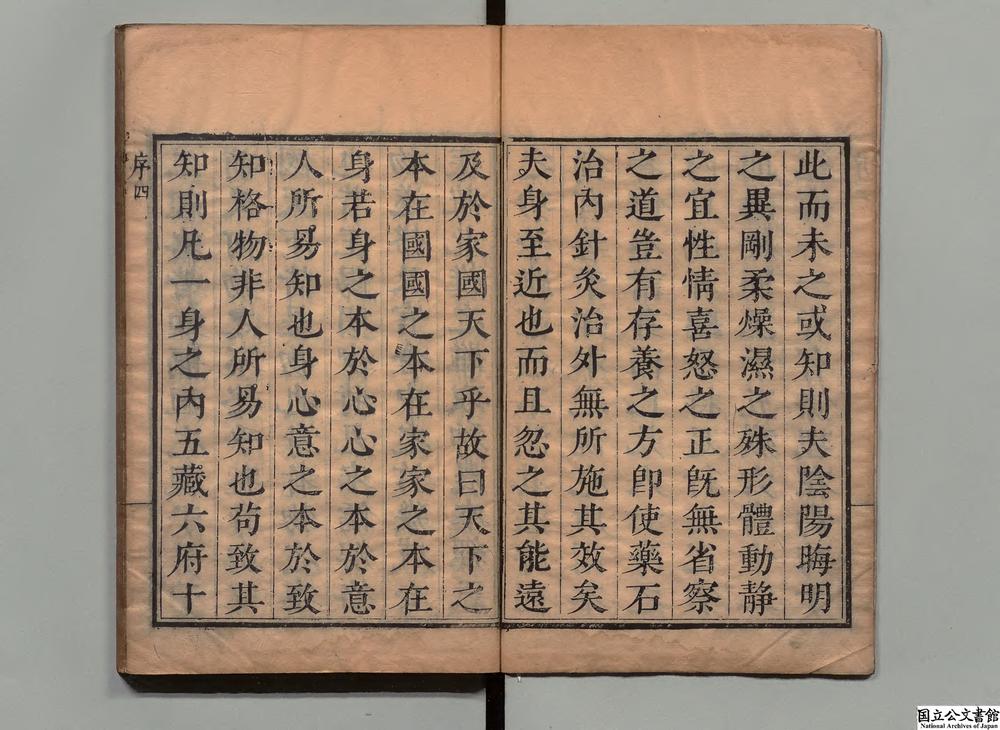 此而未之或知則夫陰陽晦明
之異剛柔燥濕之殊形體動靜
之宜性情喜怒之正旣無省察
之道豈有存養之方卽使藥石
治內針灸治外無所施其效矣
夫身至近也而且忽之其能遠
及於家國天下乎故曰天下之
本在國國之本在家家之本在
身若身之本於心心之本於意
人所易知也身心意之本於致
知格物非人所易知也苟致其
知則凡一身之內五藏六府十
序四
国立公文書館
National Archives of Japan